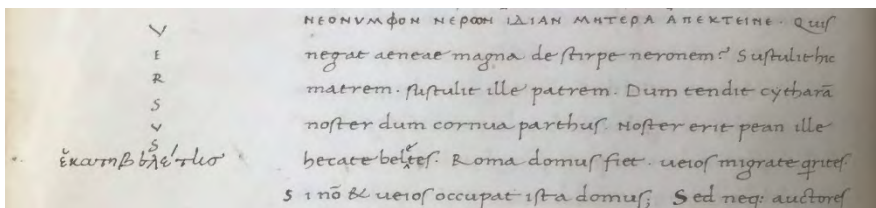 VERSVS
ΝΕΟΝΥΜΦΟΝ ΝΕΡΩΝ ΙΔΙΑΝ ΜΗΤΕΡΑ ΑΠΕΚΤΕΙΝΕ. Quiſ
negat aeneae magna de ſtirpe neronem? Suſtulit hic
matrem. ſuſtulit ille patrem. Dum tendit cytharā
noſter dum cornua parthuſ. Noſter erit pean ille
hecatebeleteſ. Roma domuſ fiet. ueioſ migrate qriteſ
Si nō & ueioſ occupat iſta domuſ; Sed neq: auctoreſ